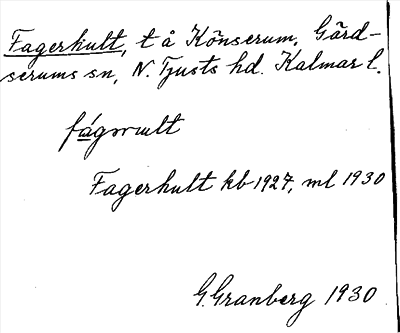 Fagerhult, t å Könserum, Gärd-
serums sn, N. Tjusts hd. Kalmar l.
Fagerhult kb 1927, ml 1930
G. Granberg 1930